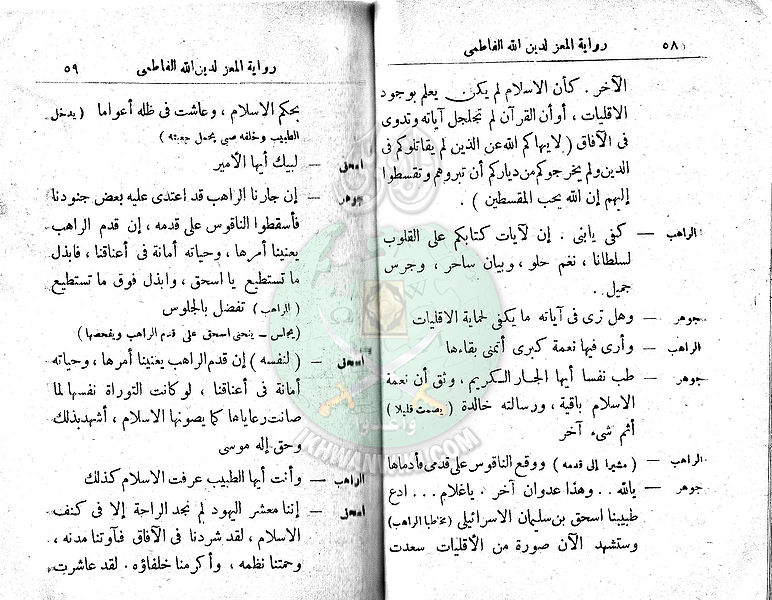 ٥٨ رواية المعز لدين الله الفاطمى
الآخر . كأن الاسلام لم يكن يعلم بوجود
الاقليات ، أو أن القرآن لم تجلجل آياته وتدوى
فى الآفاق ( لا ينهاكم الله عن الذين لم يقاتلوكم فى
الدين ولم يخرجوكم من دياركم أن تبروهم وتقسطوا
إليهم إن الله يحب المقسطين ) .
الراهب — كفى يابنى . إن لآيات كتابكم على القلوب
لسلطانا ، نغم حلو ، وبيان ساحر ، وجرس
جميل .
جوهر — وهل ترى فى آياته ما يكفى لحماية الاقليات
الراهب — وأرى فيها نعمة كبرى أتمنى بقاءها
جوهر — طب نفسا أيها الجار الكريم ، وثق أن نعمة
الاسلام باقية ، ورسالته خالدة ( يصمت قليلا )
أثم شىء آخر
الراهب — ( مشيرا إلى قدمه ) ووقع الناقوس على قدمى فأدماها
جوهر — يالله .. وهذا عدوان آخر . ياغلام ... ادع
طبيبنا اسحق بن سليمان الاسرائيلى ( مخاطبا الراهب )
وستشهد الآن صورة من الأقليات سعدت
رواية المعز لدين الله الفاطمى ٥٩
بحكم الاسلام ، وعاشت فى ظله أعواما ( يدخل
الطبيب وخلفه صبى يحمل جعبته )
اسحق — لبيك أيها الأمير
جوهر — إن جارنا الراهب قد اعتدى عليه بعض جنودنا
فأسقطوا الناقوس على قدمه ، إن قدم الراهب
يعنينا أمرها ، وحياته أمانة فى أعناقنا ، فابذل
ما تستطيع يا اسحق ، وابذل فوق ما تستطيع
( للراهب ) تفضل بالجلوس
( يجلس – ينحنى اسحق على قدم الراهب ويفحصها )
اسحق — ( لنفسه ) إن قدم الراهب يعنينا أمرها ، وحياته
أمانة فى أعناقنا ، لو كانت التوراة نفسها لما
صانت رعاياها كما يصونها الاسلام ، أشهد بذلك
وحق إله موسى
الراهب — وأنت أيها الطبيب عرفت الاسلام كذلك
اسحق — إننا معشر اليهود لم نجد الراحة إلا فى كنف
الاسلام ، لقد شردنا فى الآفاق فآوتنا مدنه ،
وحمتنا نظمه ، وأكرمنا خلفاؤه . لقد عاشرت
وأعدوا
IKHWANWIKI.COM